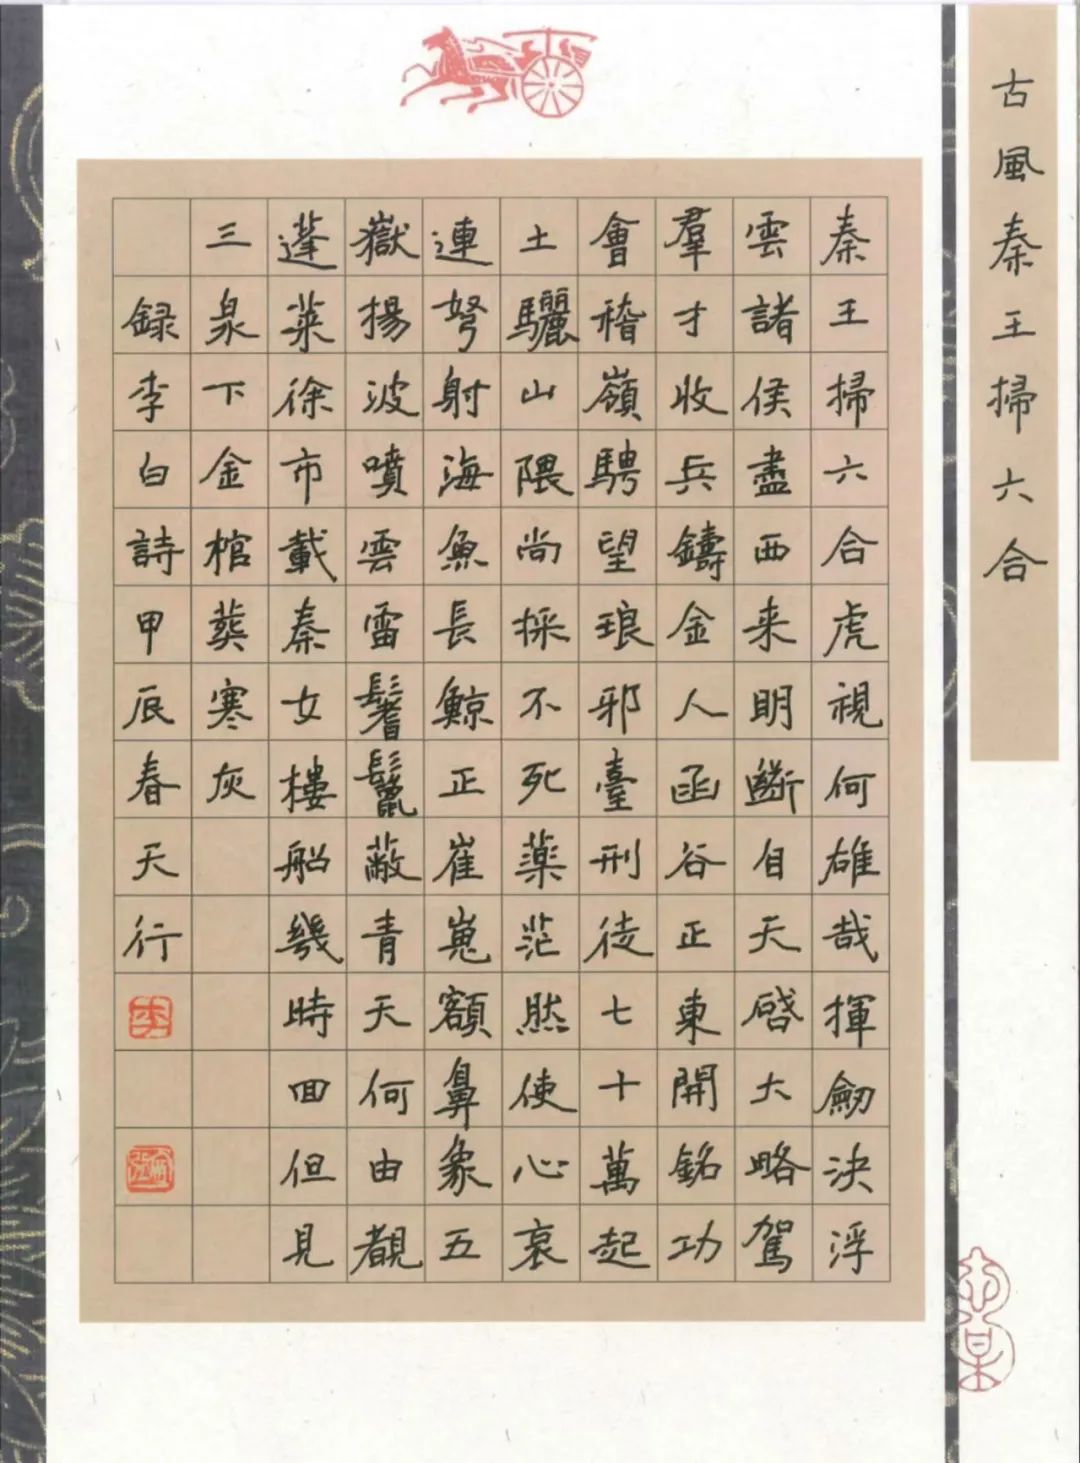 古風秦王掃六合
秦王掃六合虎視何雄哉揮劒決浮
雲諸侯盡西来明斷自天啓大略駕
羣才收兵鑄金人函谷正東開銘功
會稽嶺騁望琅邪臺刑徒七十萬起
土驪山隈尚採不死藥茫然使心哀
連弩射海魚長鯨正崔嵬額鼻象五
嶽揚波噴雲雷鬐鬣蔽青天何由覩
蓬萊徐市載秦女樓船幾時回但見
三泉下金棺葬寒灰
録李白詩甲辰春天行